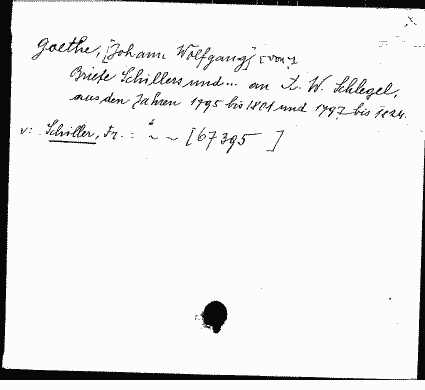 Goethe, [Johann Wolfgang] [von]
Briefe Schillers und... an A. W. Schlegel,
aus den Jahren 1795 bis 1801 und 1797 bis 1824.
v: Schiller, Fr. : ~ ~ [67395 ]